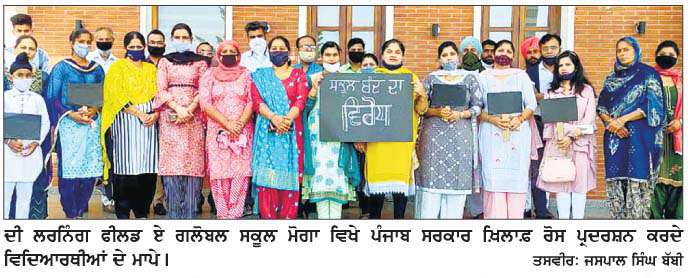 ਸਕੂਲ ਬੰਦ ਦਾ
ਵਿਰੋਧ
ਦੀ ਲਰਨਿੰਗ ਫੀਲਡ ਏ ਗਲੋਬਲ ਸਕੂਲ ਮੋਗਾ ਵਿਖੇ ਪੰਜਾਬ ਸਰਕਾਰ ਖ਼ਿਲਾਫ਼ ਰੋਸ ਪ੍ਰਦਰਸ਼ਨ ਕਰਦੇ
ਵਿਦਿਆਰਥੀਆਂ ਦੇ ਮਾਪੇ। ਤਸਵੀਰ: ਜਸਪਾਲ ਸਿੰਘ ਬੱਬੀ